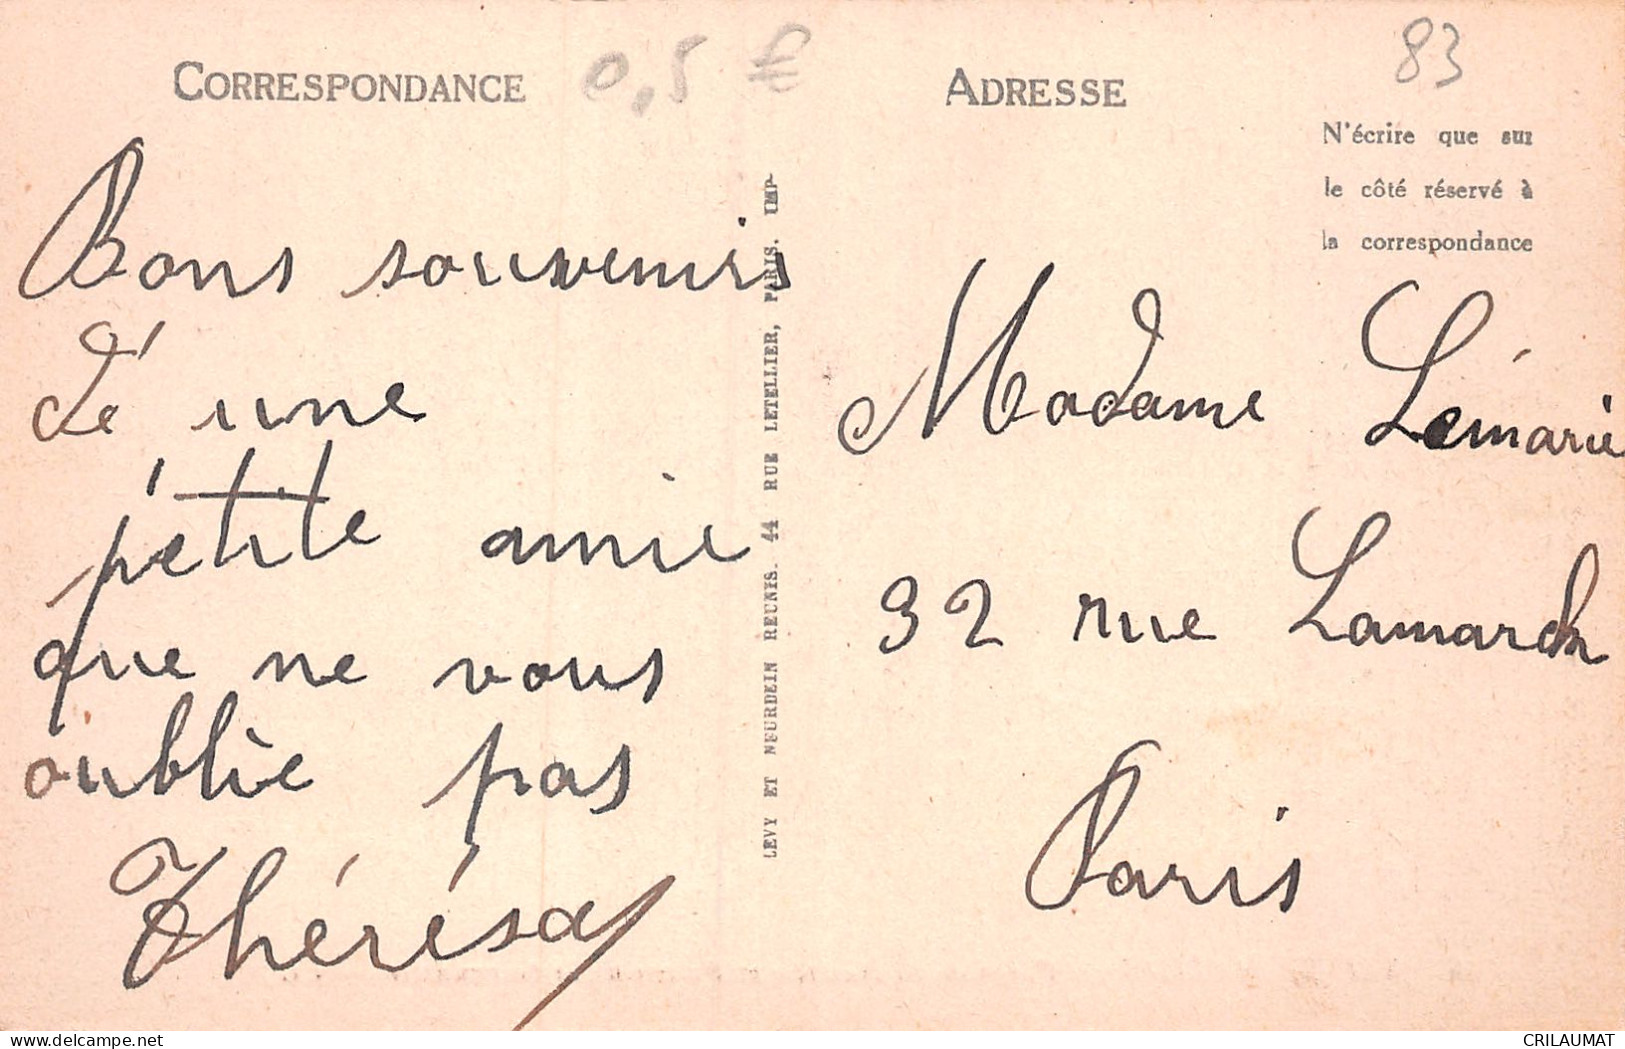 CORRESPONDANCE
0,5 €
ADRESSE
83
N'écrire que sur
le côté réservé à
la correspondance
Bons souvenirs
d'une
petite amie
que ne vous
oublie pas
Thérésa
LEVY ET NEURDEIN REUNIS. 44 RUE LETELLIER, PARIS. IMP-
Madame Lémarie
32 rue Lamarck
Paris
delcampe.net
CRILAUMAT